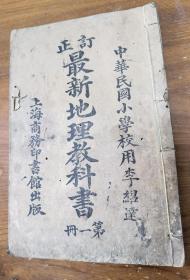 中華民國小學校用李紹蓮
訂正
最新地理教科書
第一冊
上海商務印書館出版